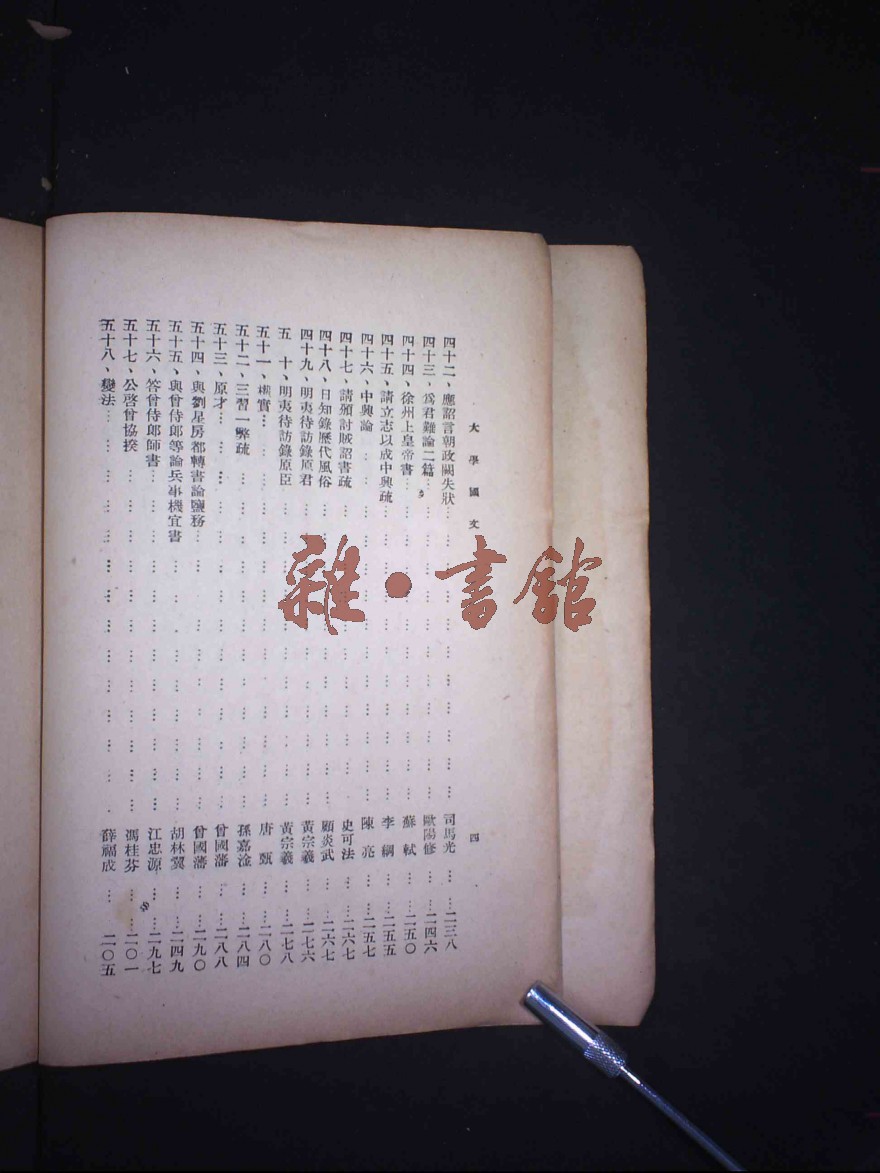 大學國文 四
四十二、應詔言朝政闕失狀……司馬光……二三八
四十三、爲君難論二篇……歐陽修……二四六
四十四、徐州上皇帝書……蘇軾……二五〇
四十五、請立志以成中興疏……李綱……二五五
四十六、中興論……陳亮……二五七
四十七、請頒討賊詔書疏……史可法……二六七
四十八、日知錄歷代風俗……顧炎武……二六七
四十九、明夷待訪錄原君……黃宗羲……二七六
五十、明夷待訪錄原臣……黃宗羲……二七八
五十一、權實……唐甄……二八〇
五十二、三習一弊疏……孫嘉淦……二八四
五十三、原才……曾國藩……二八八
五十四、與劉星房都轉書論鹽務……曾國藩……二九〇
五十五、與曾侍郎等論兵事機宜書……胡林翼……二四九
五十六、答曾侍郎師書……江忠源……二九七
五十七、公啓曾協揆……馮桂芬……二〇一
五十八、變法……薛福成……二〇五
雜·書館